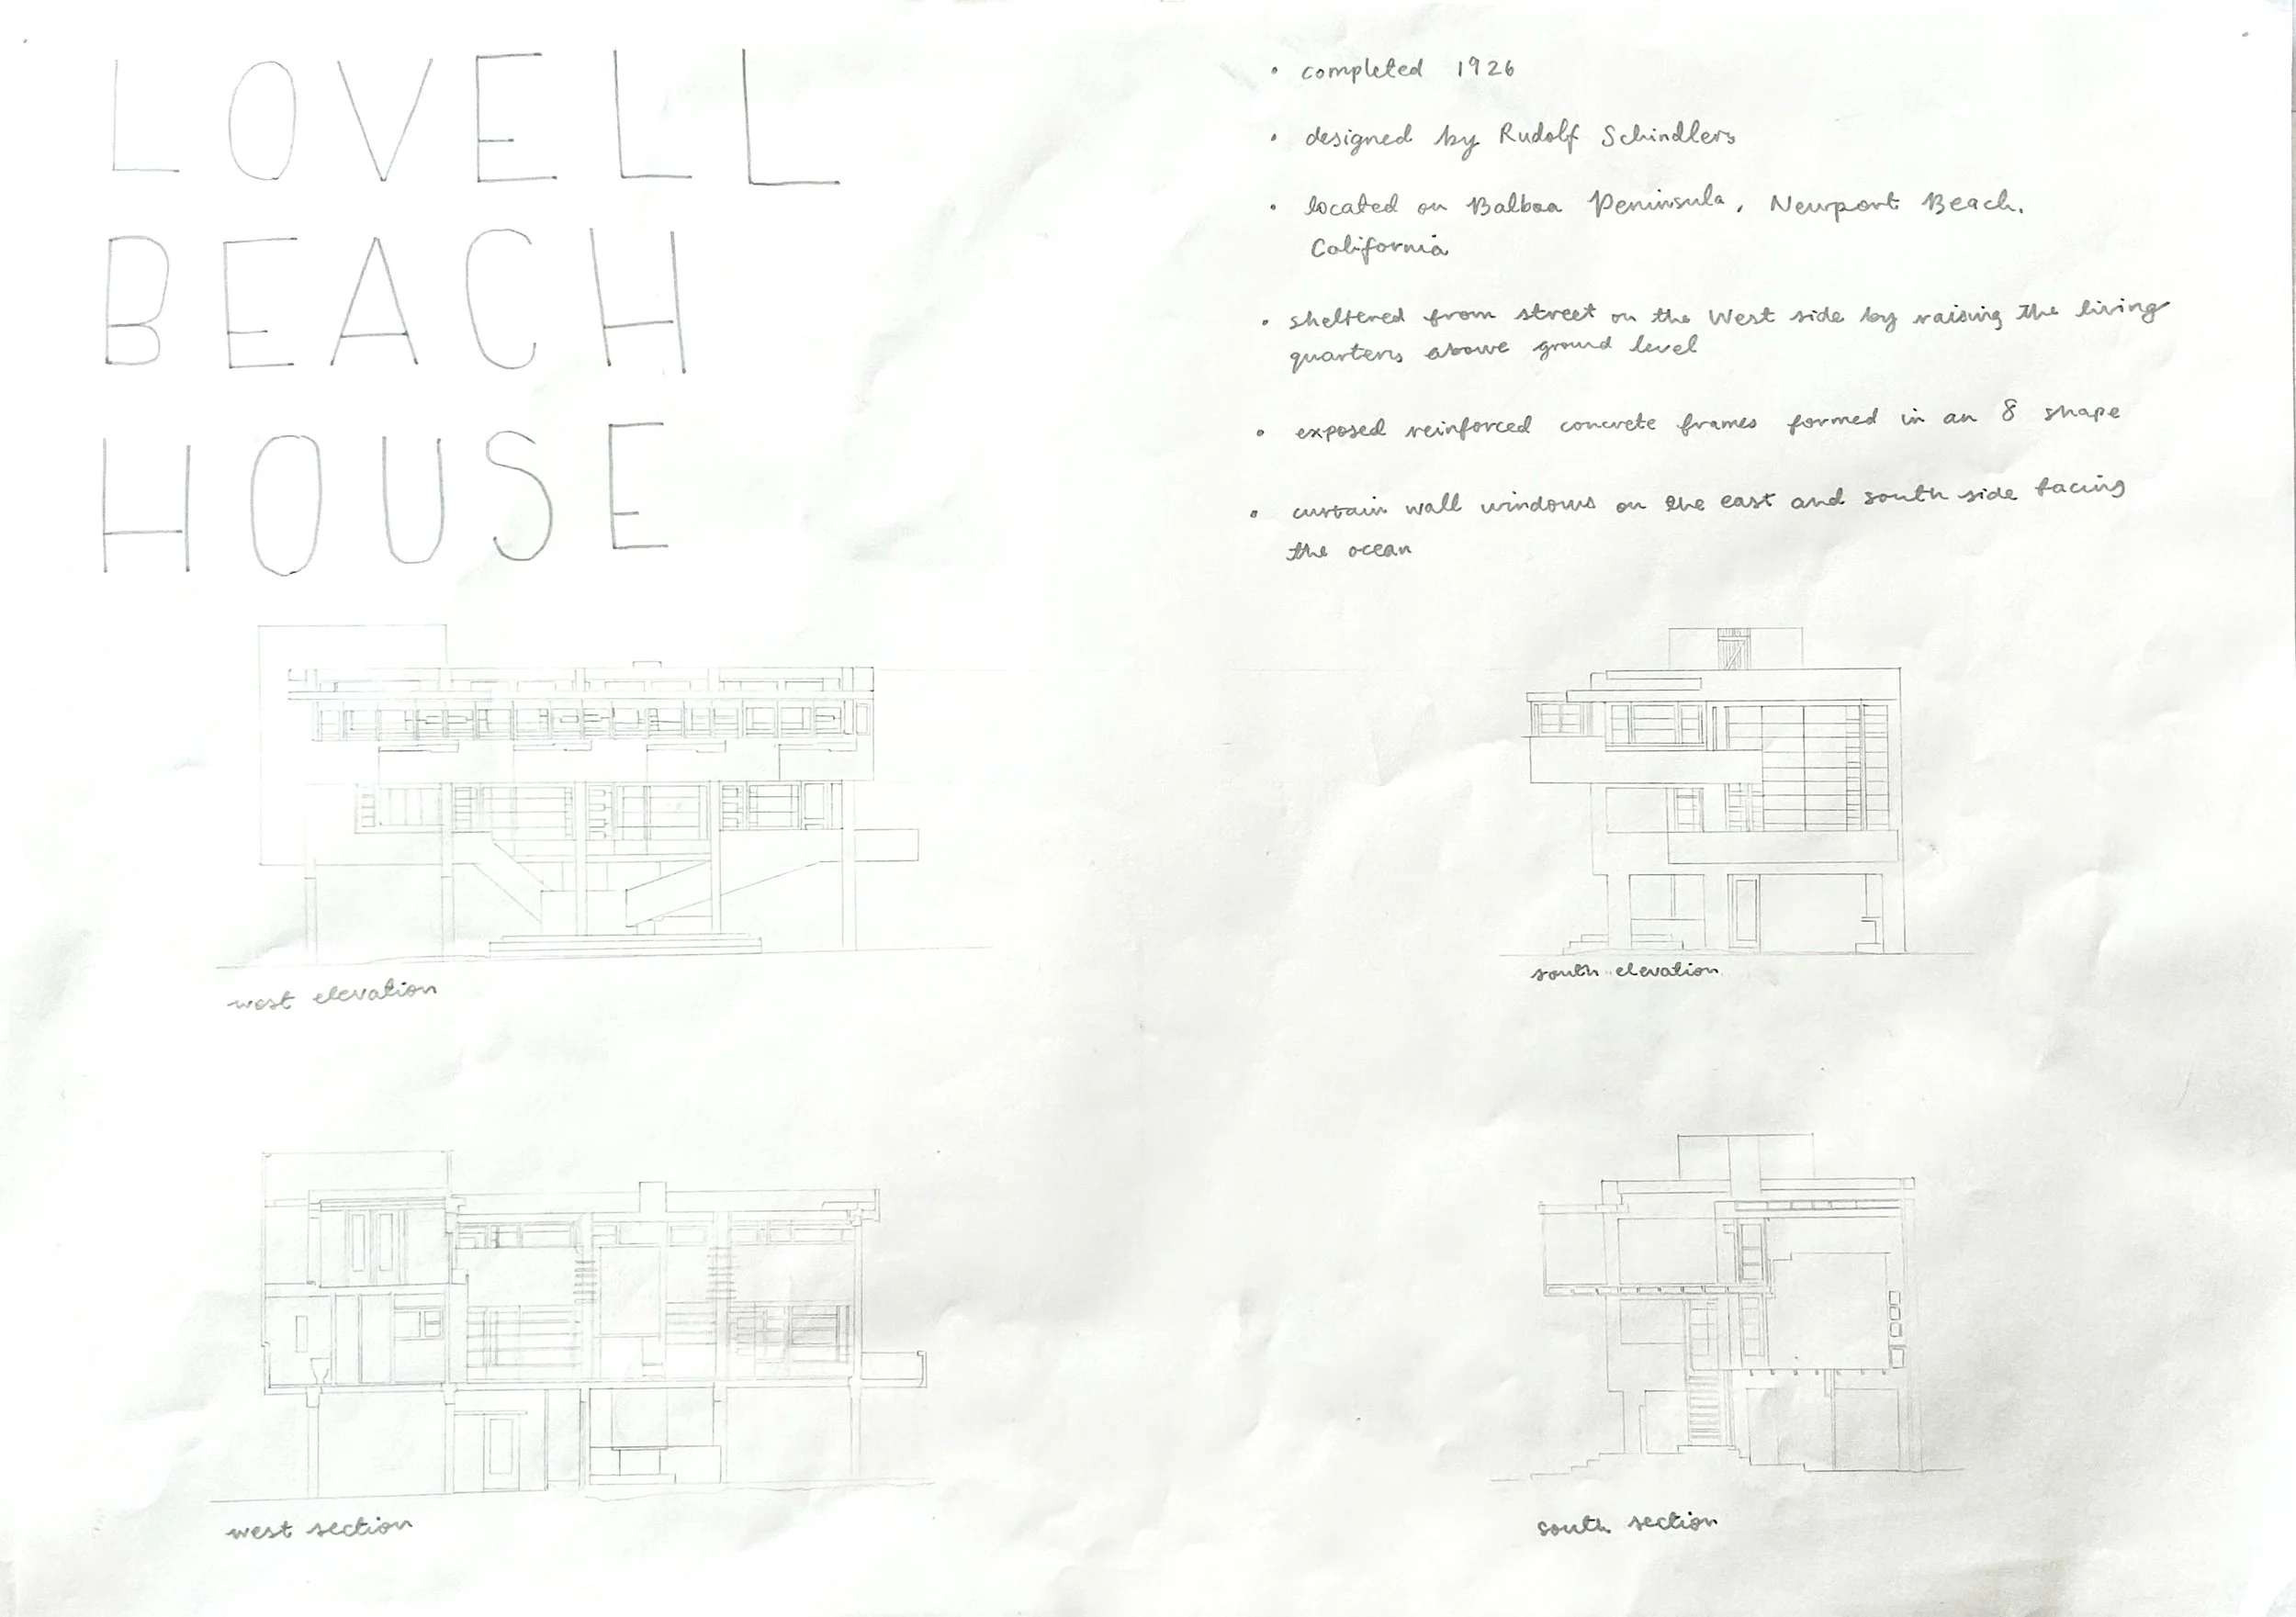 LOVELL
BEACH
HOUSE
• completed 1926
• designed by Rudolf Schindlers
• located on Balboa Peninsula, Newport Beach.
California
• sheltered from street on the West side by raising the living
quarters above ground level
• exposed reinforced concrete frames formed in an 8 shape
• curtain wall windows on the east and south side facing
the ocean
west elevation
south elevation
west section
south section